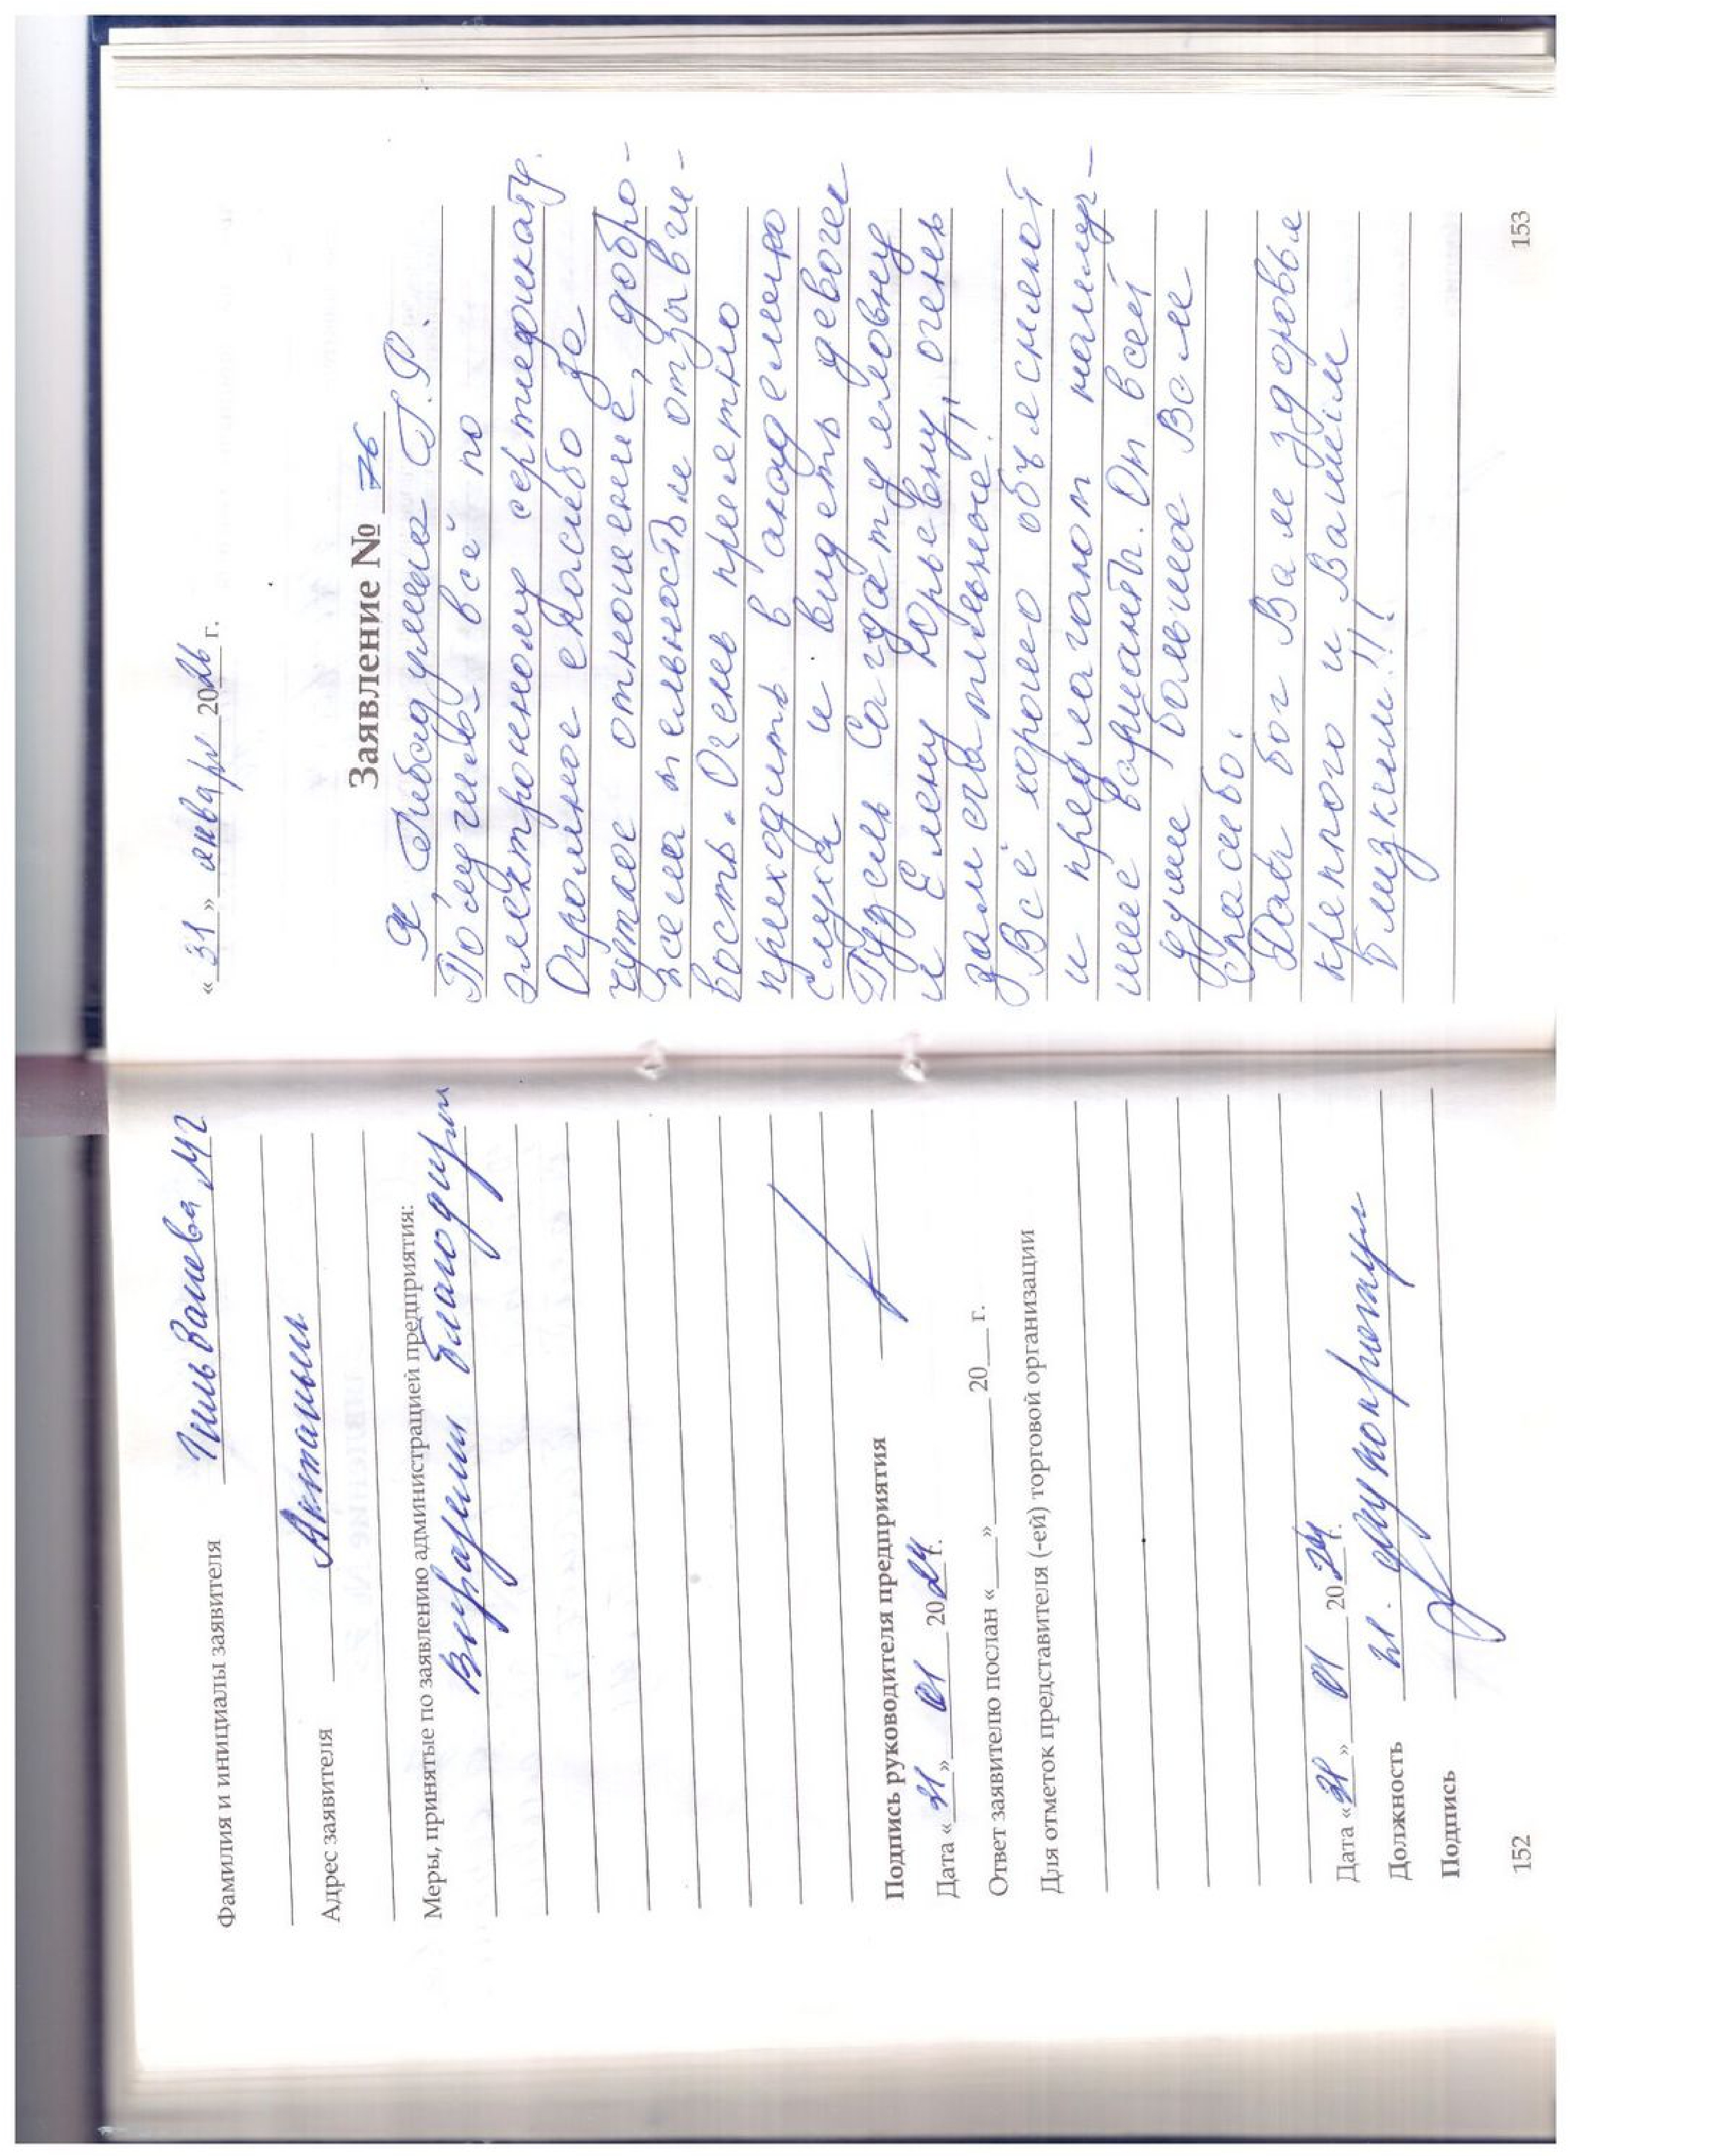 Фамилия и инициалы заявителя Гильванева МГ
Адрес заявителя Актаныш
Меры, принятые по заявлению администрацией предприятия:
Выразили благодарн
Подпись руководителя предприятия
Дата «31» 01 2024 г.
Ответ заявителю послан «___»________20___г.
Для отметок представителя (-ей) торговой организации
Дата «31» 01 2024 г.
Должность
Подпись
152
«31» января 2026 г.
Заявление № 76
Я Гибадуллина Г.Р.
Получила всё по
электронному сертификату.
Огромное спасибо за
чуткое отношение, добро-
желательность и отзывчи-
вость. Очень приятно
приходить в академию
слуха и видеть девочек
Гузель Сагдатулловну
и Елену Юрьевну, очень
замечательные!
Всё хорошо объясняют
и предлагают наилуч-
шие варианты. От всей
души большое Вам
Спасибо.
Дай бог Вам здоровья
крепкого и Вашим
Близким!!!
153